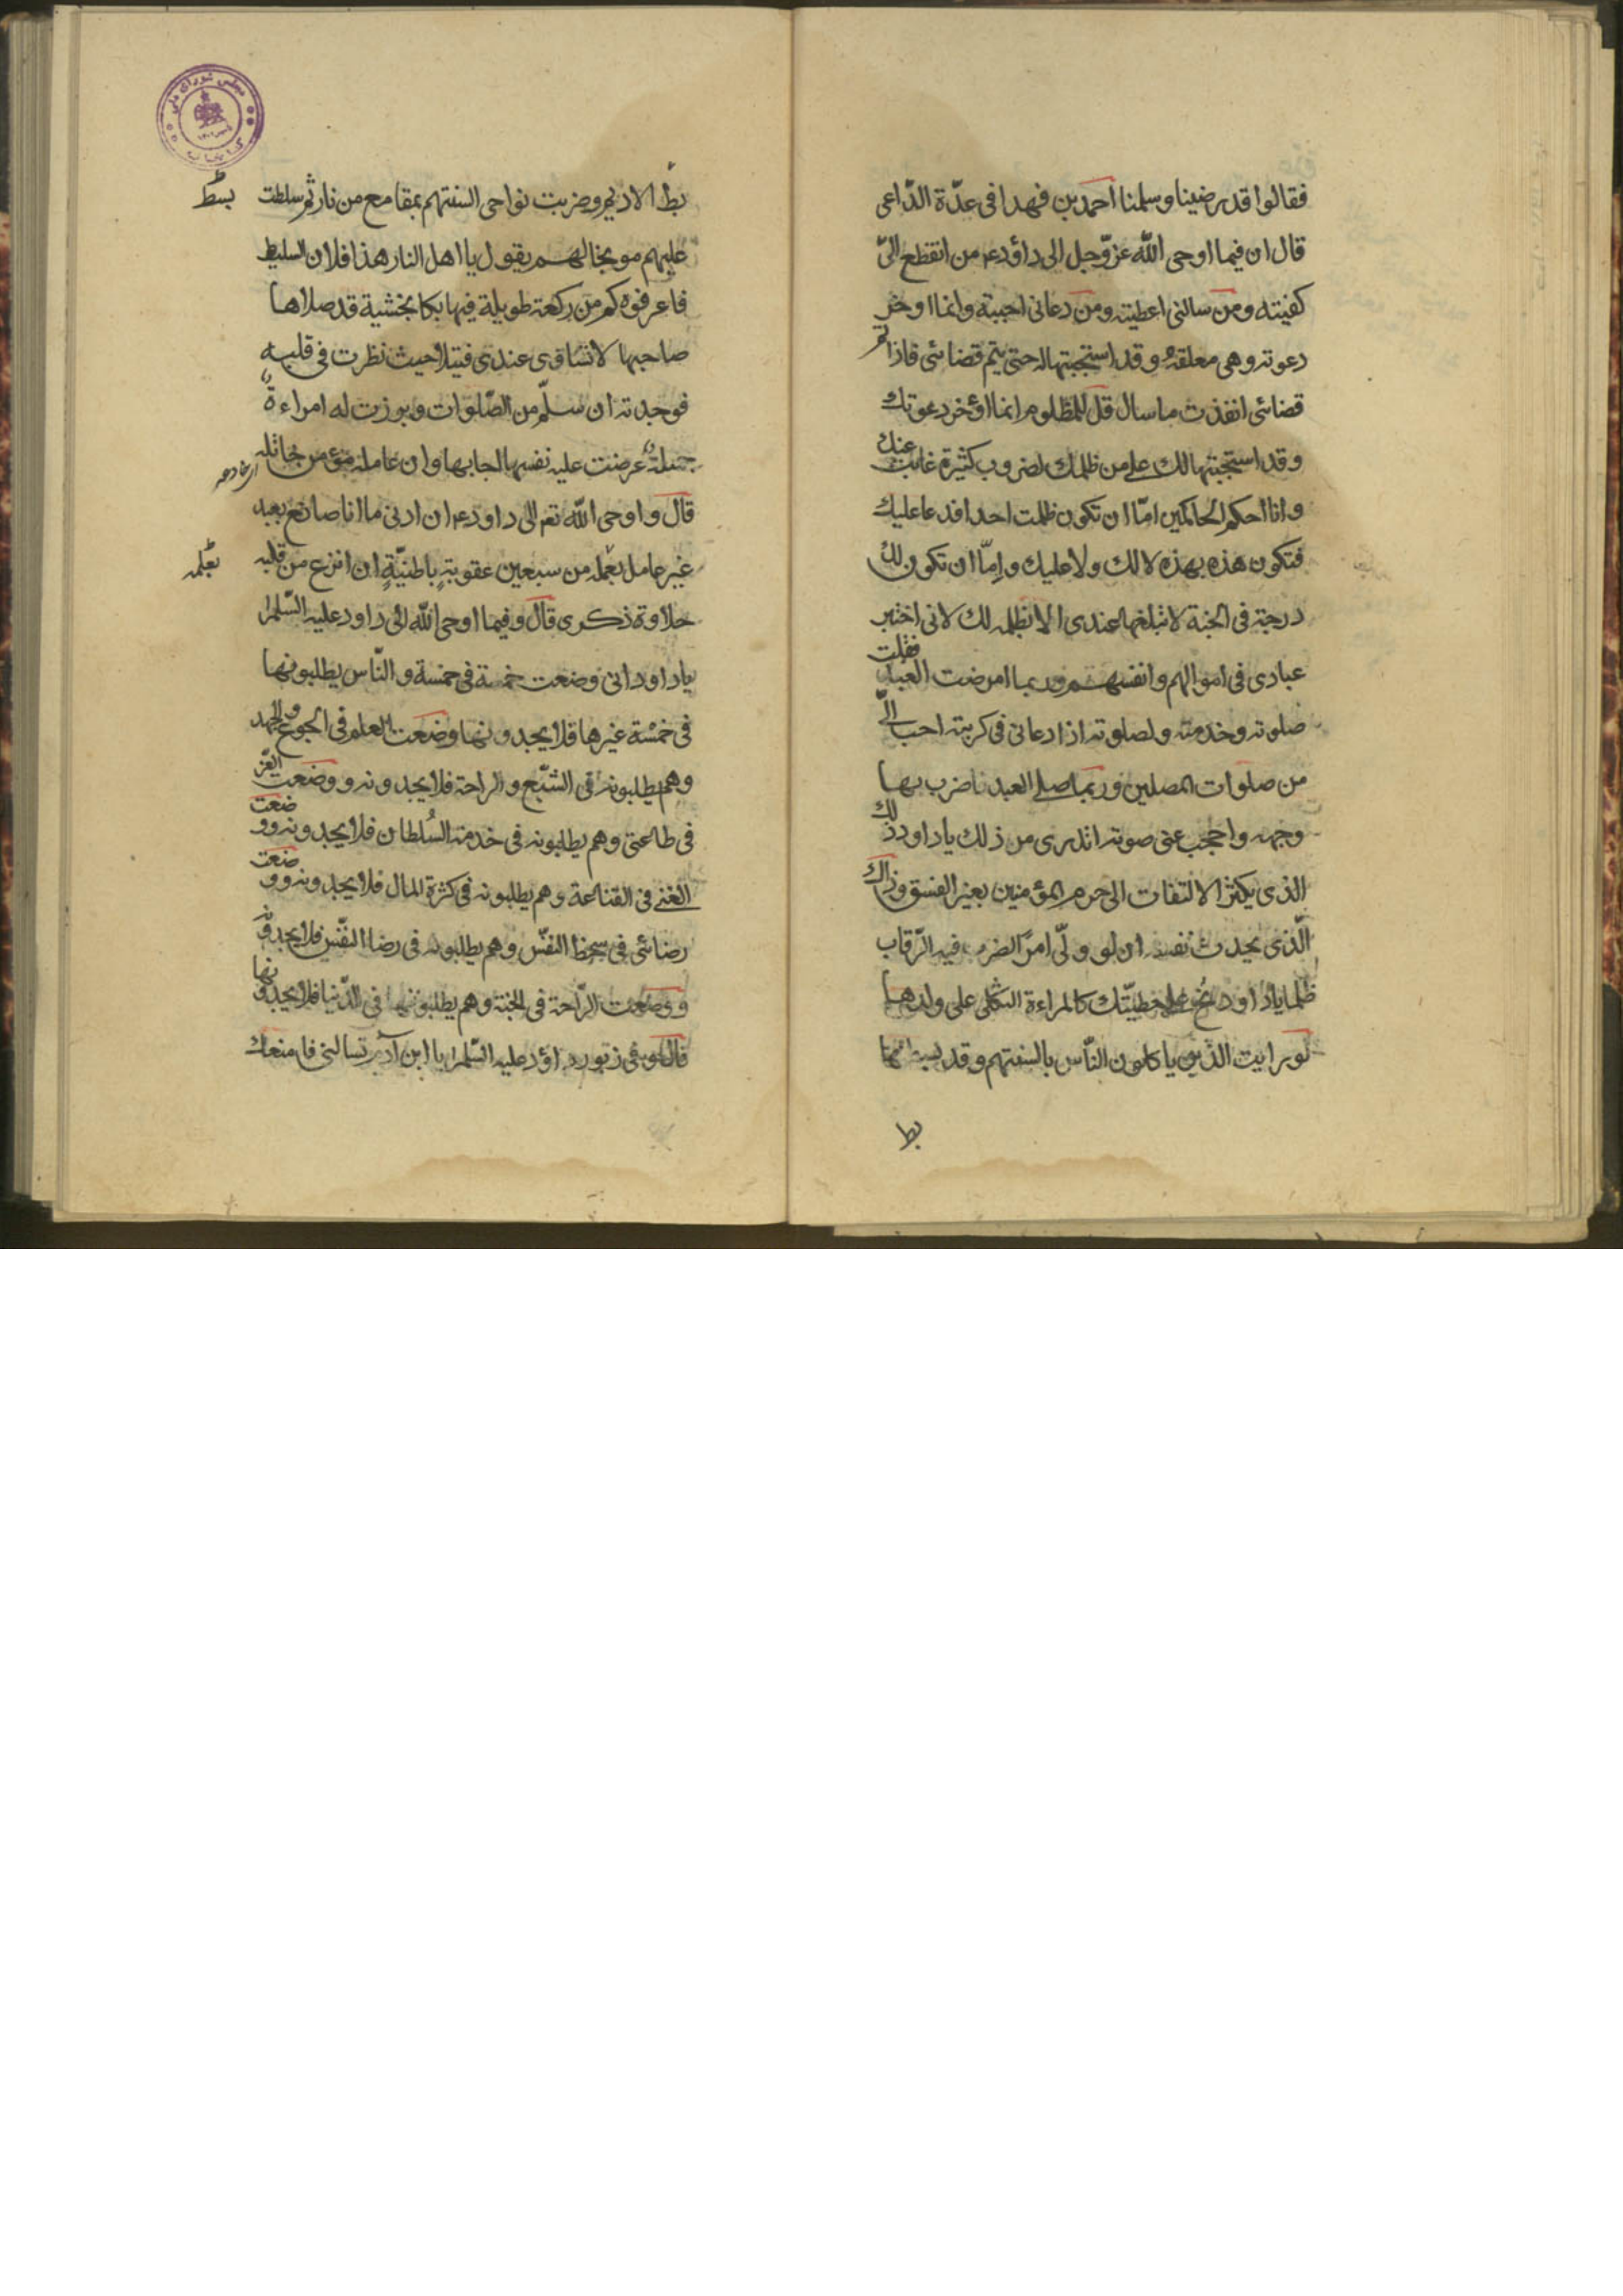 فقالوا قد رضينا وسلمنا احمد بن فهد فى عدّة الدّاعى
قال ان فيما اوحى اللّه عزّ وجل الى داؤد ع من انقطع الىّ
كفيته ومن سالنى اعطيته ومن دعانى اجبته وانما اوخر
دعوته وهى معلقة وقد استجبتها له حتى يتم قضائى فاذا تم
قضائى انفذت ما سال قل للمظلوم انما اؤخر دعوتك
وقد استجبتها لك على من ظلمك لضروب كثيرة غابت عنك
وانا احكم الحاكمين امّا ان تكون ظلمت احدا فدعا عليك
فتكون هذه بهذه لا لك ولا عليك وامّا ان تكون لك
درجة فى الجنة لا تبلغها عندى الا بظلمه لك لانى اختبر
عبادى فى اموالهم وانفسهم وربما امرضت العبد فقلت
صلوته وخدمته ولصلوته اذا دعانى فى كربته احب الىّ
من صلوات المصلين وربما صلى العبد فاضرب بها
وجهه واحجب عنى صوته اتدرى من ذلك يا داود ذلك
الذى يكثر الالتفات الى حرم المؤمنين بعين الفسق وذاك
الّذى يحدث نفسه ان لو ولّى امرا لضرب فيه الرّقاب
ظلما يا داود نح على خطيئتك كالمراءة الثكلى على ولدها
لو رايت الذين ياكلون الناس بالسنتهم وقد بسطتها
بط
بط الاديم وضربت نواحى السنتهم بمقامع من نار ثم سلطت
بسط
عليهم موبخا لهم يقول يا اهل النار هذا فلان السليط
فاعرفوه كم من ركعة طويلة فيها بكا بخشية قد صلاها
صاحبها لا تساوى عندى فتيلا حيث نظرت فى قلبه
فوجدته ان سلّم من الصّلوات وبرزت له امراءة
جميلة عرضت عليه نفسها اجابها وان عامله مؤمن خاتله
قال واوحى اللّه تع الى داود ع ان ادنى ما انا صانع بعبد
غير عامل بعمله من سبعين عقوبة باطنيّة ان انزع من قلبه
بعلمه
حلاوة ذكرى قال وفيما اوحى اللّه الى داود عليه السّلم
يا داود انى وضعت خمسة فى خمسة والنّاس يطلبونها
فى خمسة غيرها فلا يجدونها وضعت العلم فى الجوع والجهد
وهم يطلبونه فى الشبّع والراحة فلا يجدونه ووضعت العزّ
فى طاعتى وهم يطلبونه فى خدمة السُلطان فلا يجدونه ووضعت
الغنى فى القناعة وهم يطلبونه فى كثرة المال فلا يجدونه ووضعت
رضائى فى سخط النفّس وهم يطلبونه فى رضا النفّس فلا يجدونه
ووضعت الرّاحة فى الجنة وهم يطلبونها فى الدّنيا فلا يجدونها
قال وفى زبور داؤد عليه السّلم يا ابن آدم تسالنى فامنعك